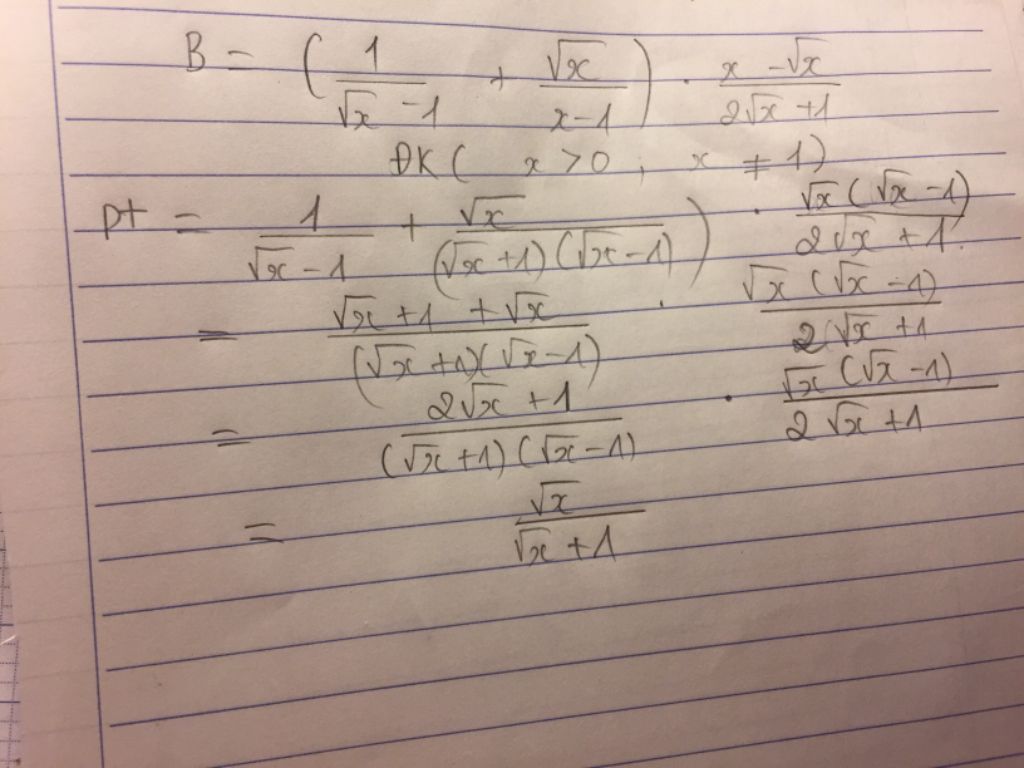 B = ( 1/(√x - 1) + √x/(x - 1) ) . (x - √x)/(2√x + 1)
ĐK ( x > 0 ; x ≠ 1)
pt = 1/(√x - 1) + √x/((√x + 1)(√x - 1)) ) . √x(√x - 1)/(2√x + 1)
= (√x + 1 + √x)/((√x + 1)(√x - 1)) . √x(√x - 1)/(2√x + 1)
= (2√x + 1)/((√x + 1)(√x - 1)) . √x(√x - 1)/(2√x + 1)
= √x/(√x + 1)